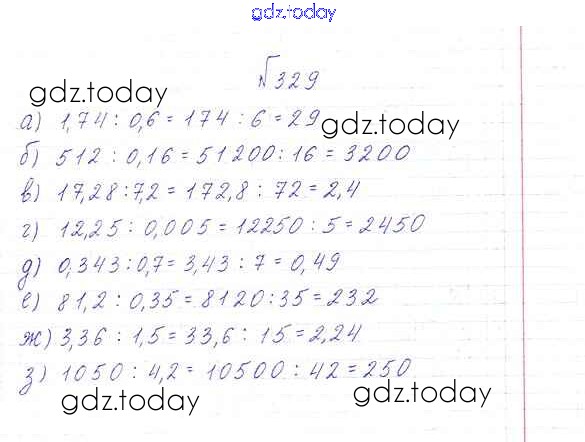 gdz.today
№329
gdz.today
а) 1,74 : 0,6 = 174 : 6 = 29
gdz.today
б) 512 : 0,16 = 51200 : 16 = 3200
в) 17,28 : 7,2 = 172,8 : 72 = 2,4
г) 12,25 : 0,005 = 12250 : 5 = 2450
д) 0,343 : 0,7 = 3,43 : 7 = 0,49
е) 81,2 : 0,35 = 8120 : 35 = 232
ж) 3,36 : 1,5 = 33,6 : 15 = 2,24
з) 1050 : 4,2 = 10500 : 42 = 250
gdz.today
gdz.today